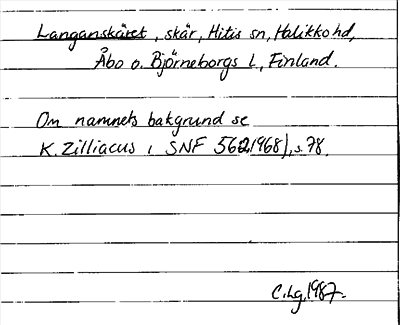 Langanskäret, skär, Hitis sn, Halikko hd,
Åbo o. Björneborgs l., Finland.
Om namnets bakgrund se
K. Zilliacus i SNF 56 (1968), s. 78.
C. Lg. 1987.